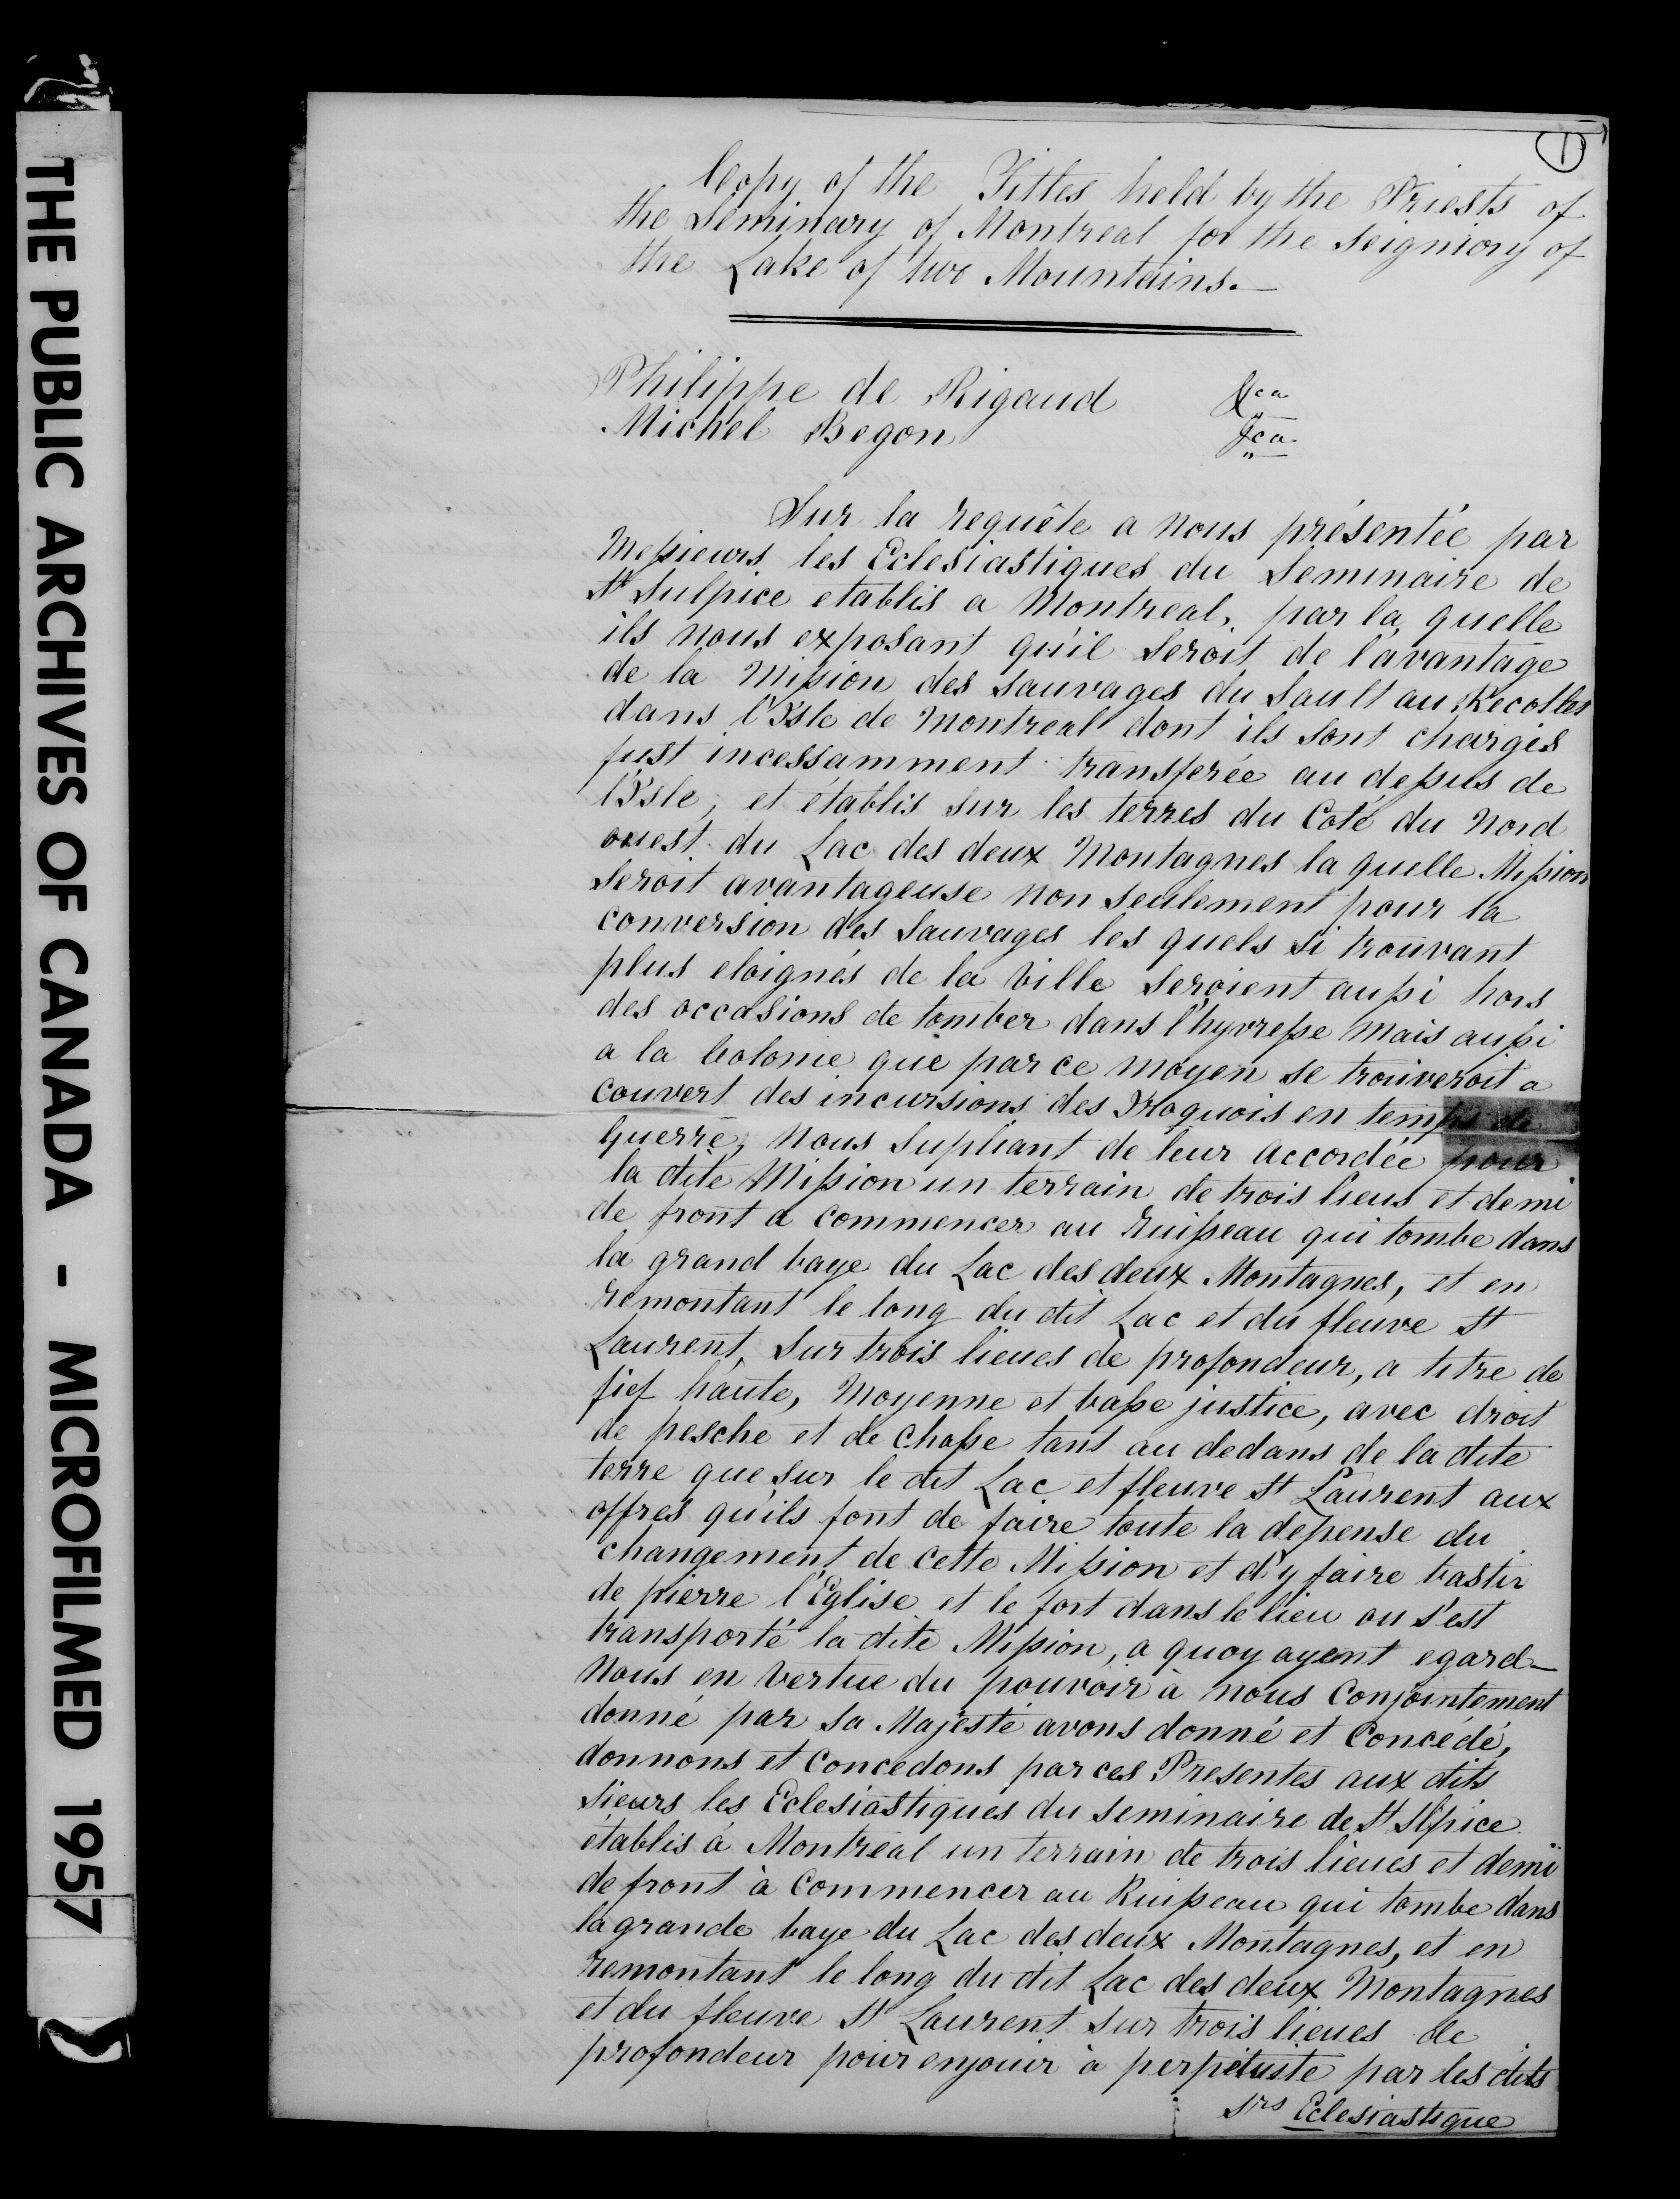 THE PUBLIC ARCHIVES OF CANADA - MICROFILMED 1957
1
Copy of the Titles held by the Priests of
the Seminary of Montreal for the Seigniory of
the Lake of two Mountains.
Philippe de Rigaud &ca
Michel Begon &ca
Sur la requête a nous présentée par
Messieurs les Eclesiastiques du Seminaire de
St Sulpice etablis a Montreal, par la quelle
ils nous exposant qu'il seroit de l'avantage
de la Mission des Sauvages du Sault au Recolles
dans l'Isle de Montreal dont ils sont chargés
fust incessamment transferée au dessus de
l'Isle, et établis sur les terres du Coté du Nord
ouest du Lac des deux Montagnes la quelle Mission
seroit avantageuse non seulement pour la
conversion des Sauvages les quels si trouvant
plus eloignés de la Ville seroient aussi hors
des occasions de tomber dans l'hyvresse mais aussi
a la Colonie que par ce moyen se trouveroit a
couvert des incursions des Iroquois en temps de
Guerre, Nous Supliant de leur accordée pour
la dite Mission un terrain de trois lieus et demi
de front a commencer au ruisseau qui tombe dans
la grand baye du Lac des deux Montagnes, et en
remontant le long du dit Lac et du fleuve St
Laurent, Sur trois lieues de profondeur, a titre de
fief haute, Moyenne et basse justice, avec droit
de pesche et de Chasse tant au dedans de la dite
terre que sur le dit Lac et fleuve St Laurent aux
offres qu'ils font de faire toute la depense du
changement de cette Mission et d'y faire bastir
de pierre l'Eglise et le fort dans le lieu ou s'est
transporté la dite Mission, a quoy ayant egard
Nous en vertue du pouvoir à nous Conjointement
donné par Sa Majesté avons donné et Concédé,
donnons et Concedons par ces Presentes aux dits
Sieurs les Eclesiastiques du Seminaire de St Slpice
établis à Montréal un terrain de trois lieues et demi
de front à Commencer au Ruisseau qui tombe dans
la grande baye du Lac des deux Montagnes, et en
remontant le long du dit Lac des deux Montagnes
et du fleuve St Laurent Sur trois lieues de
profondeur pour en jouir à perpétuité par les dits
Srs Eclesiastique